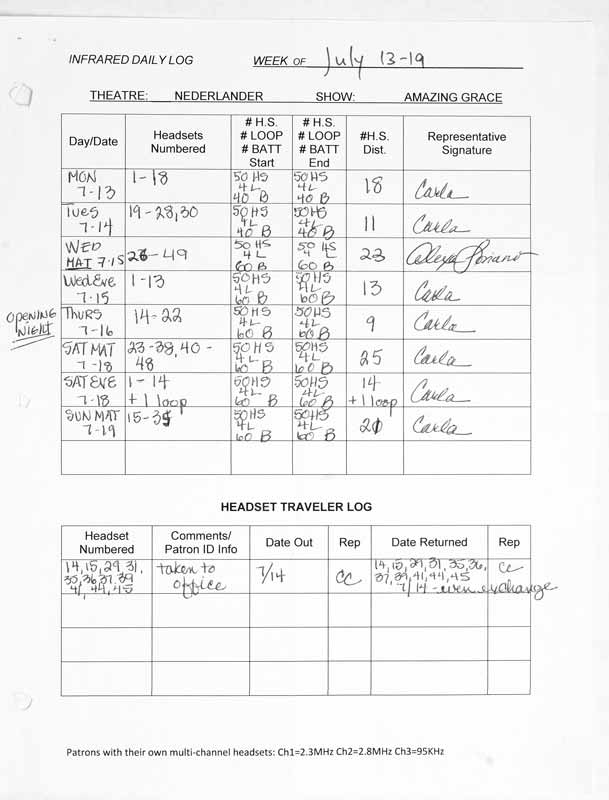 INFRARED DAILY LOG WEEK OF July 13-19
THEATRE: NEDERLANDER SHOW: AMAZING GRACE
Day/Date Headsets Numbered # H.S. # LOOP # BATT Start # H.S. # LOOP # BATT End #H.S. Dist. Representative Signature
MON 7-13 1-18 50 HS 4L 40 B 50 HS 4L 40 B 18 Carla
Tues 7-14 19-28,30 50 HS 4L 40 B 50 HS 4L 40 B 11 Carla
WED MAT 7-15 26-49 50 HS 4L 60 B 50 HS 4 L 60 B 23
Wed Eve 7-15 1-13 50 HS 4L 60 B 50 HS 4L 60 B 13 Carla
OPENING NIGHT THURS 7-16 14-22 50 HS 4L 60 B 50 HS 4L 60 B 9 Carla
SAT MAT 7-18 23-38, 40-48 50 HS 4L 60 B 50 HS 4L 60 B 25 Carla
SAT EVE 7-18 1-14 +1 loop 50 HS 4L 60 B 50 HS 4L 60 B 14 +1 loop Carla
SUN MAT 7-19 15-35 50 HS 4L 60 B 50 HS 4L 60 B 21 Carla
HEADSET TRAVELER LOG
Headset Numbered Comments/ Patron ID Info Date Out Rep Date Returned Rep
14, 15, 29, 31, 35, 36, 37, 39 41, 44, 45 taken to office 7/14 CC 14, 15, 29, 31, 35, 36, 37, 39, 41, 44, 45 7/14 - even exchange CC
Patrons with their own multi-channel headsets: Ch1=2.3MHz Ch2=2.8MHz Ch3=95KHz